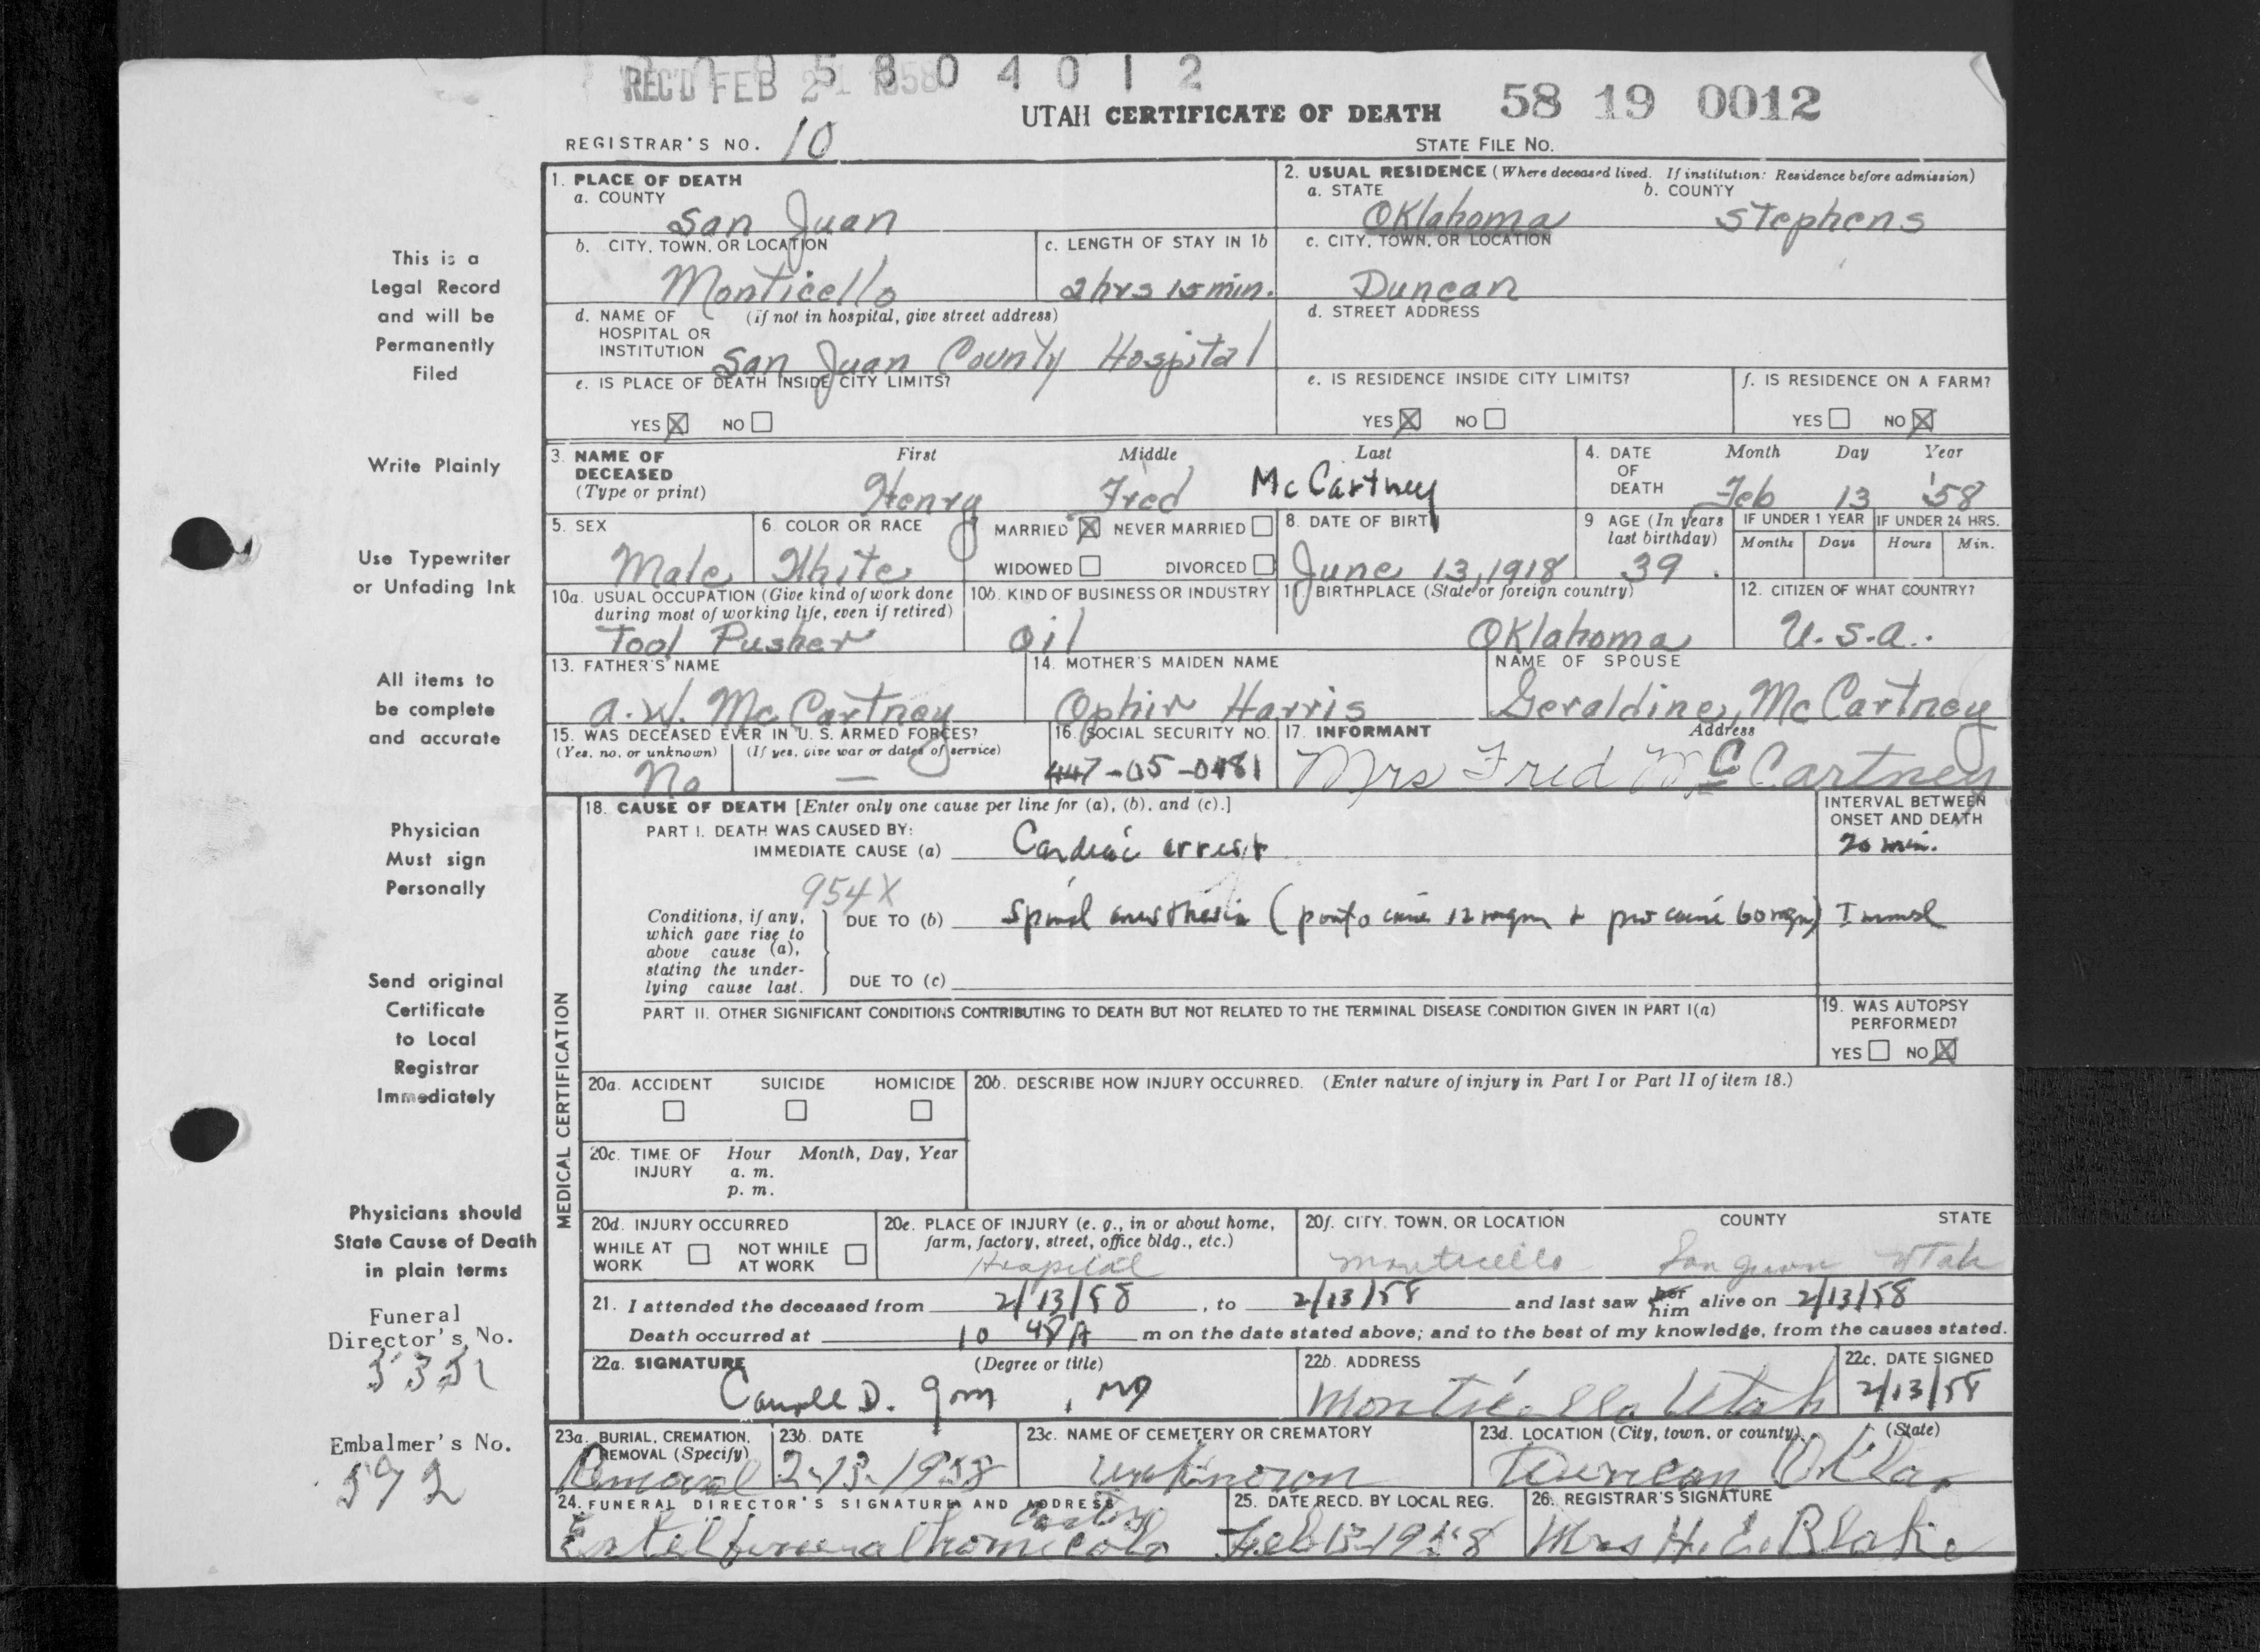 REC'D FEB 21 1958
5 8 0 4 0 1 2
UTAH CERTIFICATE OF DEATH 58 19 0012
REGISTRAR'S NO. 10 STATE FILE NO.
1. PLACE OF DEATH
a. COUNTY
San Juan
2. USUAL RESIDENCE (Where deceased lived. If institution: Residence before admission)
a. STATE b. COUNTY
Oklahoma Stephens
b. CITY, TOWN, OR LOCATION
Monticello
c. LENGTH OF STAY IN 1b
2 hrs 15 min.
c. CITY, TOWN, OR LOCATION
Duncan
d. NAME OF (if not in hospital, give street address)
HOSPITAL OR
INSTITUTION San Juan County Hospital
d. STREET ADDRESS
e. IS PLACE OF DEATH INSIDE CITY LIMITS?
YES X NO
e. IS RESIDENCE INSIDE CITY LIMITS?
YES X NO
f. IS RESIDENCE ON A FARM?
YES NO X
3. NAME OF DECEASED
(Type or print)
First Middle Last
Henry Fred McCartney
4. DATE OF DEATH
Month Day Year
Feb 13 '58
5. SEX
Male
6. COLOR OR RACE
White
MARRIED X NEVER MARRIED
WIDOWED DIVORCED
8. DATE OF BIRTH
June 13, 1918
9 AGE (In years
last birthday)
39
IF UNDER 1 YEAR IF UNDER 24 HRS.
Months Days Hours Min.
10a. USUAL OCCUPATION (Give kind of work done
during most of working life, even if retired)
Tool Pusher
10b. KIND OF BUSINESS OR INDUSTRY
Oil
11. BIRTHPLACE (State or foreign country)
Oklahoma
12. CITIZEN OF WHAT COUNTRY?
U.S.A.
13. FATHER'S NAME
A.W. McCartney
14. MOTHER'S MAIDEN NAME
Ophir Harris
NAME OF SPOUSE
Geraldine, McCartney
15. WAS DECEASED EVER IN U. S. ARMED FORCES?
(Yes, no, or unknown) (If yes, give war or dates of service)
No —
16. SOCIAL SECURITY NO.
447-05-0481
17. INFORMANT Address
Mrs Fred McCartney
MEDICAL CERTIFICATION
18. CAUSE OF DEATH [Enter only one cause per line for (a), (b), and (c).]
PART I. DEATH WAS CAUSED BY:
IMMEDIATE CAUSE (a) Cardiac arrest
INTERVAL BETWEEN
ONSET AND DEATH
20 min.
954X
Conditions, if any,
which gave rise to
above cause (a),
stating the under-
lying cause last.
DUE TO (b) Spinal anesthesia (pontocaine 12 mgm + procaine 60 mgm)
DUE TO (c)
PART II. OTHER SIGNIFICANT CONDITIONS CONTRIBUTING TO DEATH BUT NOT RELATED TO THE TERMINAL DISEASE CONDITION GIVEN IN PART I(a)
19. WAS AUTOPSY
PERFORMED?
YES NO X
20a. ACCIDENT SUICIDE HOMICIDE
20b. DESCRIBE HOW INJURY OCCURRED. (Enter nature of injury in Part I or Part II of item 18.)
20c. TIME OF INJURY
Hour Month, Day, Year
a. m.
p. m.
20d. INJURY OCCURRED
WHILE AT WORK NOT WHILE AT WORK
20e. PLACE OF INJURY (e. g., in or about home,
farm, factory, street, office bldg., etc.)
Hospital
20f. CITY, TOWN, OR LOCATION COUNTY STATE
Monticello San Juan Utah
21. I attended the deceased from 2/13/58, to 2/13/58 and last saw her him alive on 2/13/58
Death occurred at 10 48 A m on the date stated above; and to the best of my knowledge, from the causes stated.
22a. SIGNATURE (Degree or title)
D. , MD
22b. ADDRESS
Monticello Utah
22c. DATE SIGNED
2/13/58
23a. BURIAL, CREMATION,
REMOVAL (Specify)
Removal
23b. DATE
2-13-1958
23c. NAME OF CEMETERY OR CREMATORY
unknown
23d. LOCATION (City, town, or county) (State)
Duncan Okla.
24. FUNERAL DIRECTOR'S SIGNATURE AND ADDRESS
Ertel funeral home Cortez Colo
25. DATE RECD. BY LOCAL REG.
Feb 13-1958
26. REGISTRAR'S SIGNATURE
Mrs H. E. Blake
This is a
Legal Record
and will be
Permanently
Filed
Write Plainly
Use Typewriter
or Unfading Ink
All items to
be complete
and accurate
Physician
Must sign
Personally
Send original
Certificate
to Local
Registrar
Immediately
Physicians should
State Cause of Death
in plain terms
Funeral
Director's No.
Embalmer's No.
592